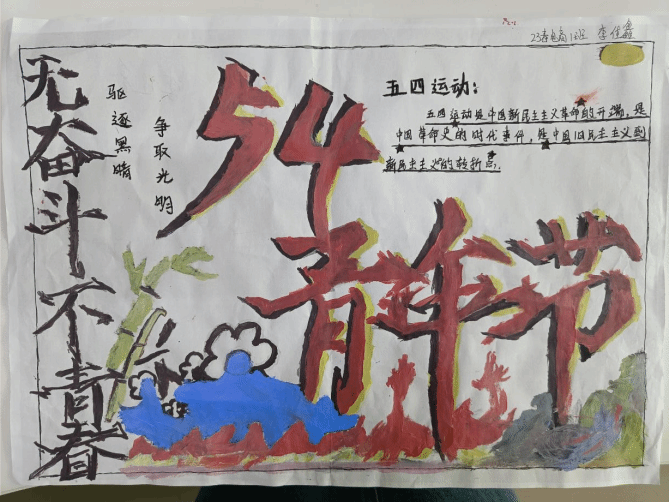 23春电商1班 李佳鑫
无奋斗不青春
驱逐黑暗
争取光明
54
青年节
五四运动:
五四运动是中国新民主主义革命的开端,是
中国革命史的时代事件,是中国旧民主主义到
新民主主义的转折点.